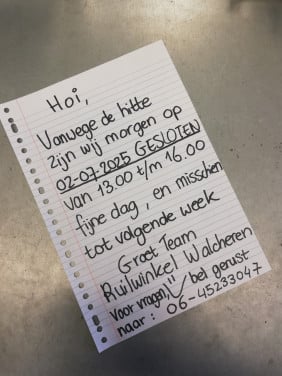 Hoi,
Vanwege de hitte
zijn wij morgen op
02-07-2025 GESLOTEN
van 13.00 t/m 16.00
fijne dag, en misschien
tot volgende week
Groet Team
Ruilwinkel Walcheren
Voor vragen, bel gerust
naar: 06-45233047